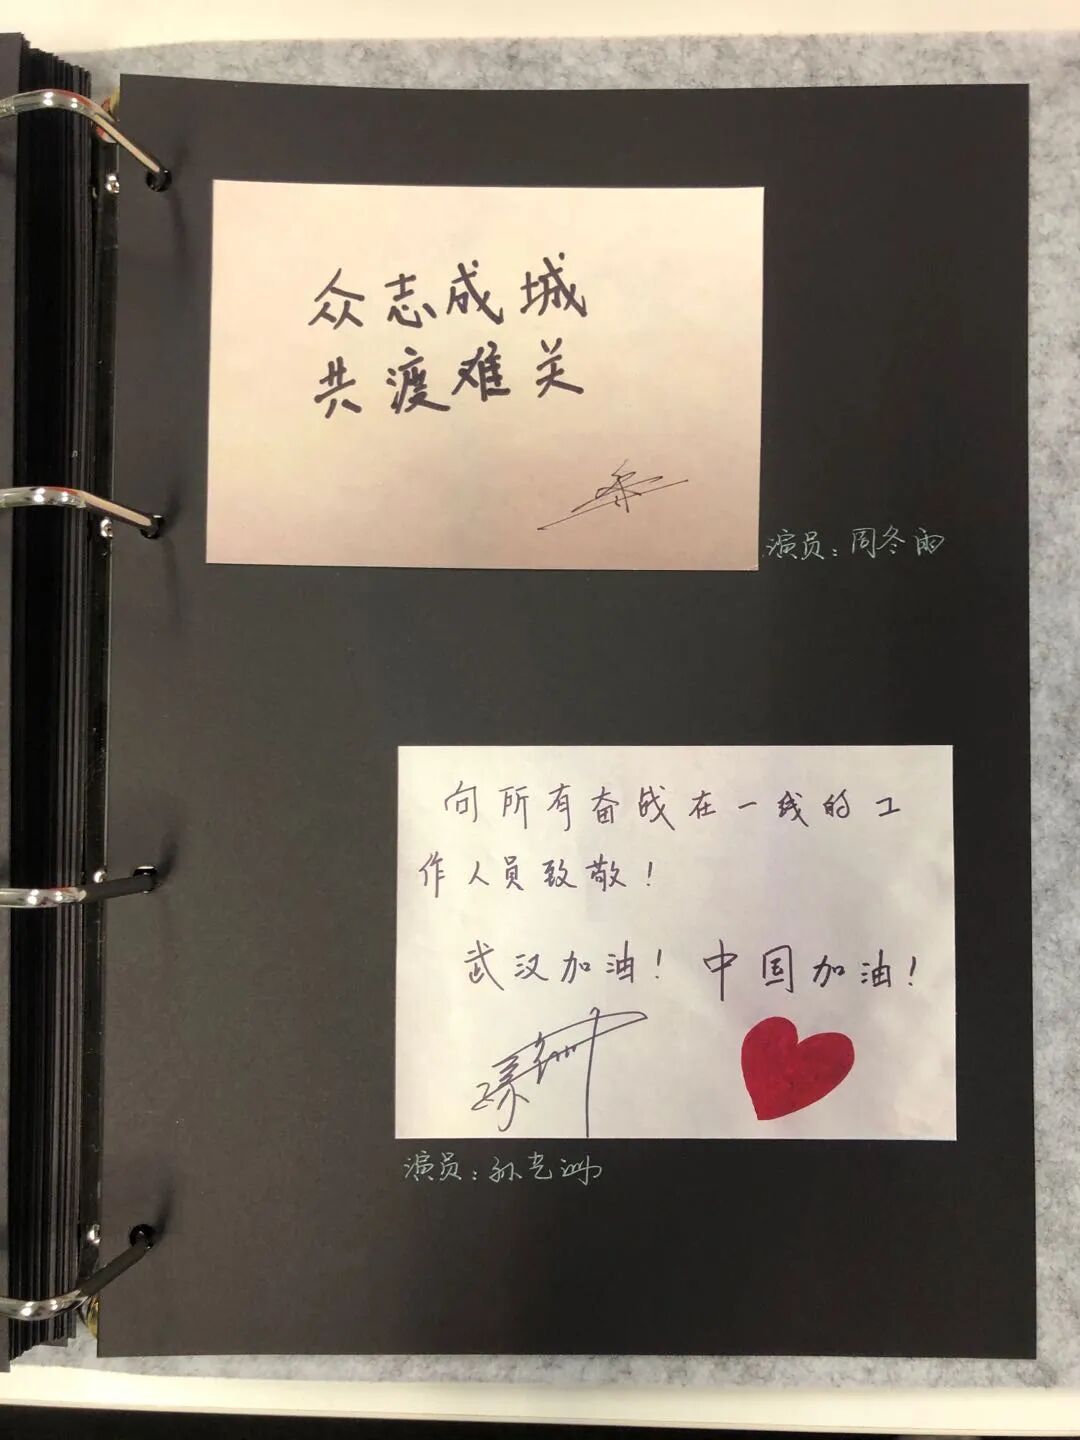 众志成城
共渡难关
演员：周冬雨
向所有奋战在一线的工
作人员致敬！
武汉加油！ 中国加油！
演员：孙艺洲